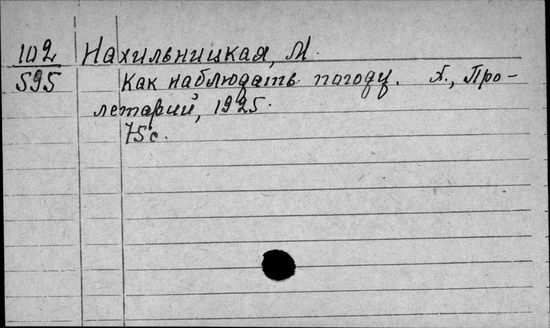 102 Нахильницкая, М.
595 Как наблюдать погоду. Х., Про-
летарий, 1925.
75 с.